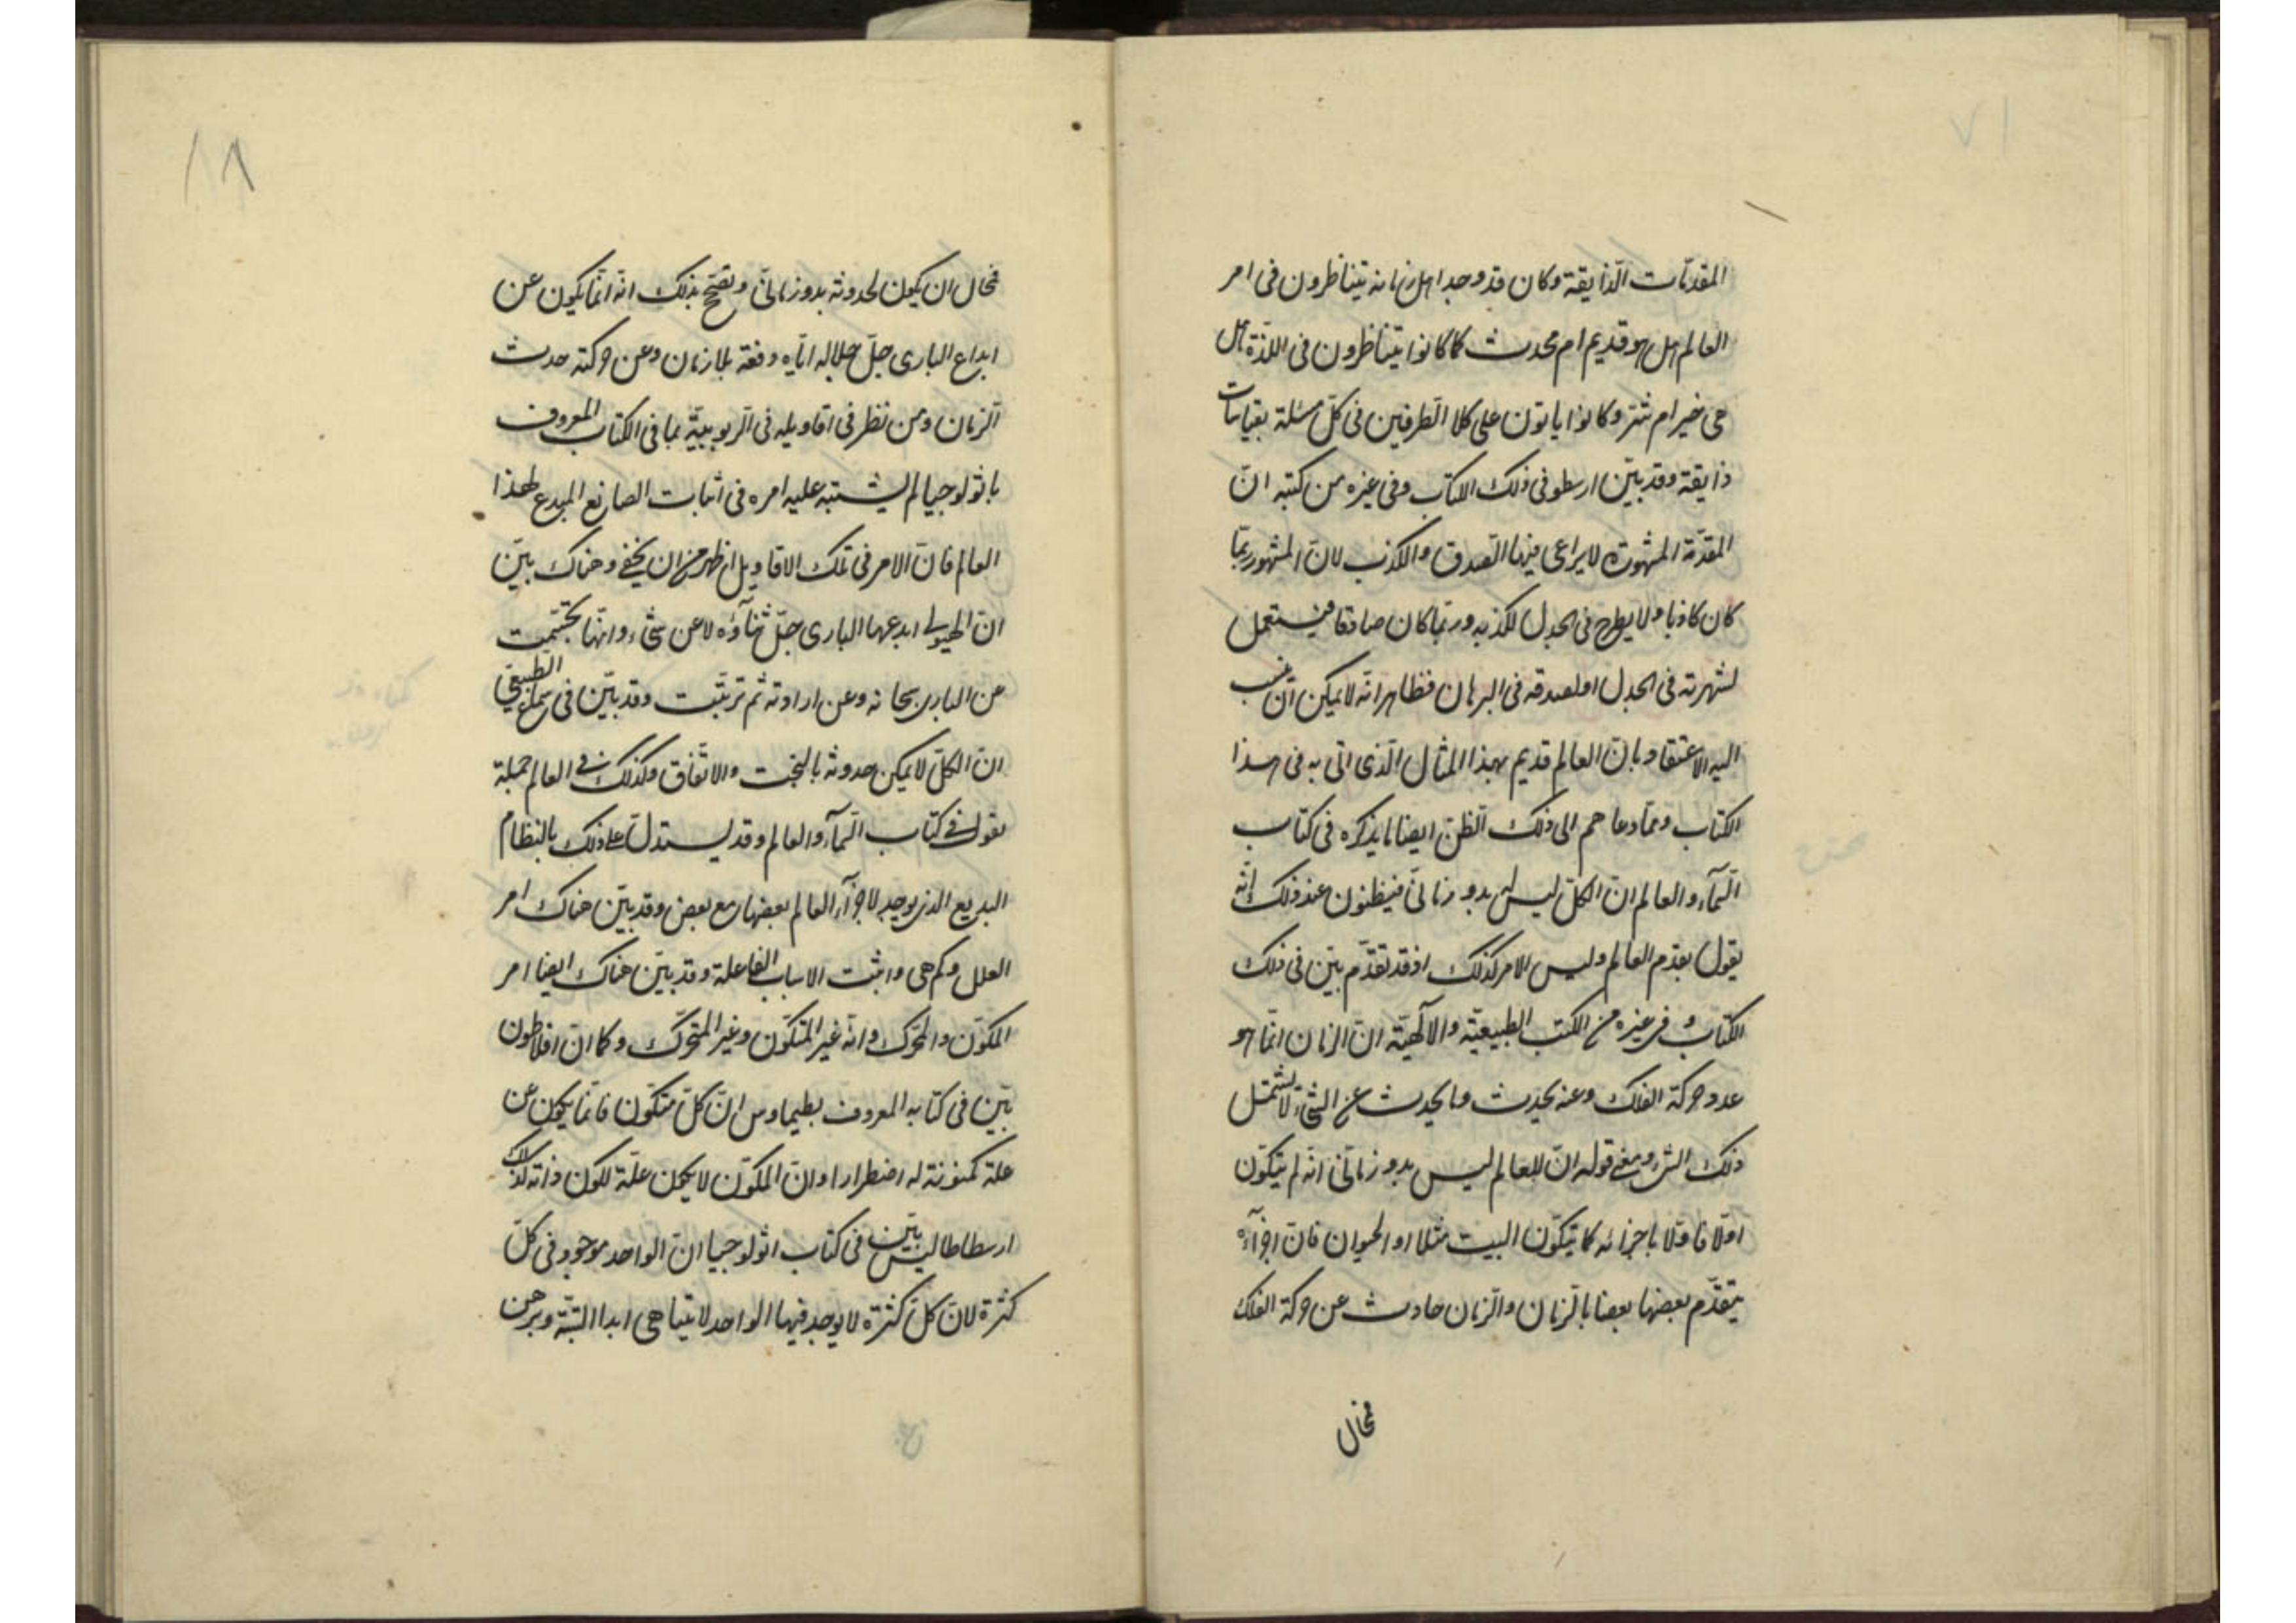 المقدّمات الذّايقة وكان قد وجد اهل زمانه يتناظرون فى امر
العالم هل هو قديم ام محدث كما كانوا يتناظرون فى اللذّة هل
هى خير ام شر وكانوا ياتون على كلا الطّرفين فى كلّ مسئلة بقياسات
ذايقة وقد بيّن ارسطو فى ذلك الكتاب وفى غيره من كتبه انّ
المقدّمة المشهورة لا يراعى فيها الصّدق والكذب لانّ المشهور ربّما
كان كاذبا ولا يطرح فى الجدل لكذبه وربّما كان صادقا فيستعمل
لشهرته فى الجدل او لصدقه فى البرهان فظاهر انّه لا يمكن ان ينسب
اليه الاعتقاد بانّ العالم قديم بهذا المثال الّذى اتى به فى هذا
الكتاب وممّا دعاهم الى ذلك الظّنّ ايضا ما يذكره فى كتاب
السّمآء والعالم انّ الكلّ ليس له بدو زمانىّ فيظنون عند ذلك انّه
يقول بقدم العالم وليس الامر كذلك اذ قد تقدّم بيّن فى ذلك
الكتاب و فى غيره من الكتب الطبيعيّة والآلهيّة انّ الزمان انّما هو
عدد حركة الفلك وعنه يحدث وما يحدث عن الشّئ لا يشتمل
ذلك الشئ ومعنى قوله انّ للعالم ليس بدو زمانىّ انّه لم يتكوّن
اوّلا فاوّلا باجزائه كما يتكوّن البيت مثلا او الحيوان فانّ اجزآءه
يتقدّم بعضها بعضا بالزّمان والزّمان حادث عن حركة الفلك
فمحال
١٨
فمحال ان يكون لحدوثه بدو زمانىّ وتصّح بذلك انّه انّما يكون عن
ابداع البارى جلّ جلاله ايّاه دفعة بلا زمان وعن حركته حدث
الزمان ومن نظر فى اقاويله فى الرّبوبيّة بما فى الكتاب المعروف
باثولوجيا لم يشتبه عليه امره فى اثبات الصانع المبدع لهذا
العالم فانّ الامر فى تلك الاقاويل اظهر من ان يخفى وهناك بيّن
انّ الهيولى ابدعها البارى جلّ ثنآؤه لا عن شئ وانّها تجسّمت
عن البارى سبحانه وعن ارادته ثم ترتّبت وقد بيّن فى سماع الطّبيعىّ
انّ الكلّ لا يمكن حدوثه بالبخت والاتّفاق وكذلك فى العالم جملة
يقول فى كتاب السّمآء والعالم وقد يستدلّ على ذلك بالنظام
البديع الذى يوجد لاجزآء العالم بعضها مع بعض وقد بيّن هناك امر
العلل وكم هى واثبت الاسباب الفاعلة وقد بيّن هناك ايضا امر
المكوّن والمحّرك وانّه غير المتكوّن وغير المتحرّك وكما انّ افلاطون
بيّن فى كتابه المعروف بطيماوس انّ كلّ متكوّن فانّما يكون عن
علة مكونة له اضطرارا وانّ المكوّن لا يكون علّة لكون ذاته كذلك
ارسطاطاليس بيّن فى كتاب اثولوجيا انّ الواحد موجود فى كلّ
كثرة لانّ كلّ كثرة لا يوجد فيها الواحد لا يتناهى ابدا البتّة وبرهن